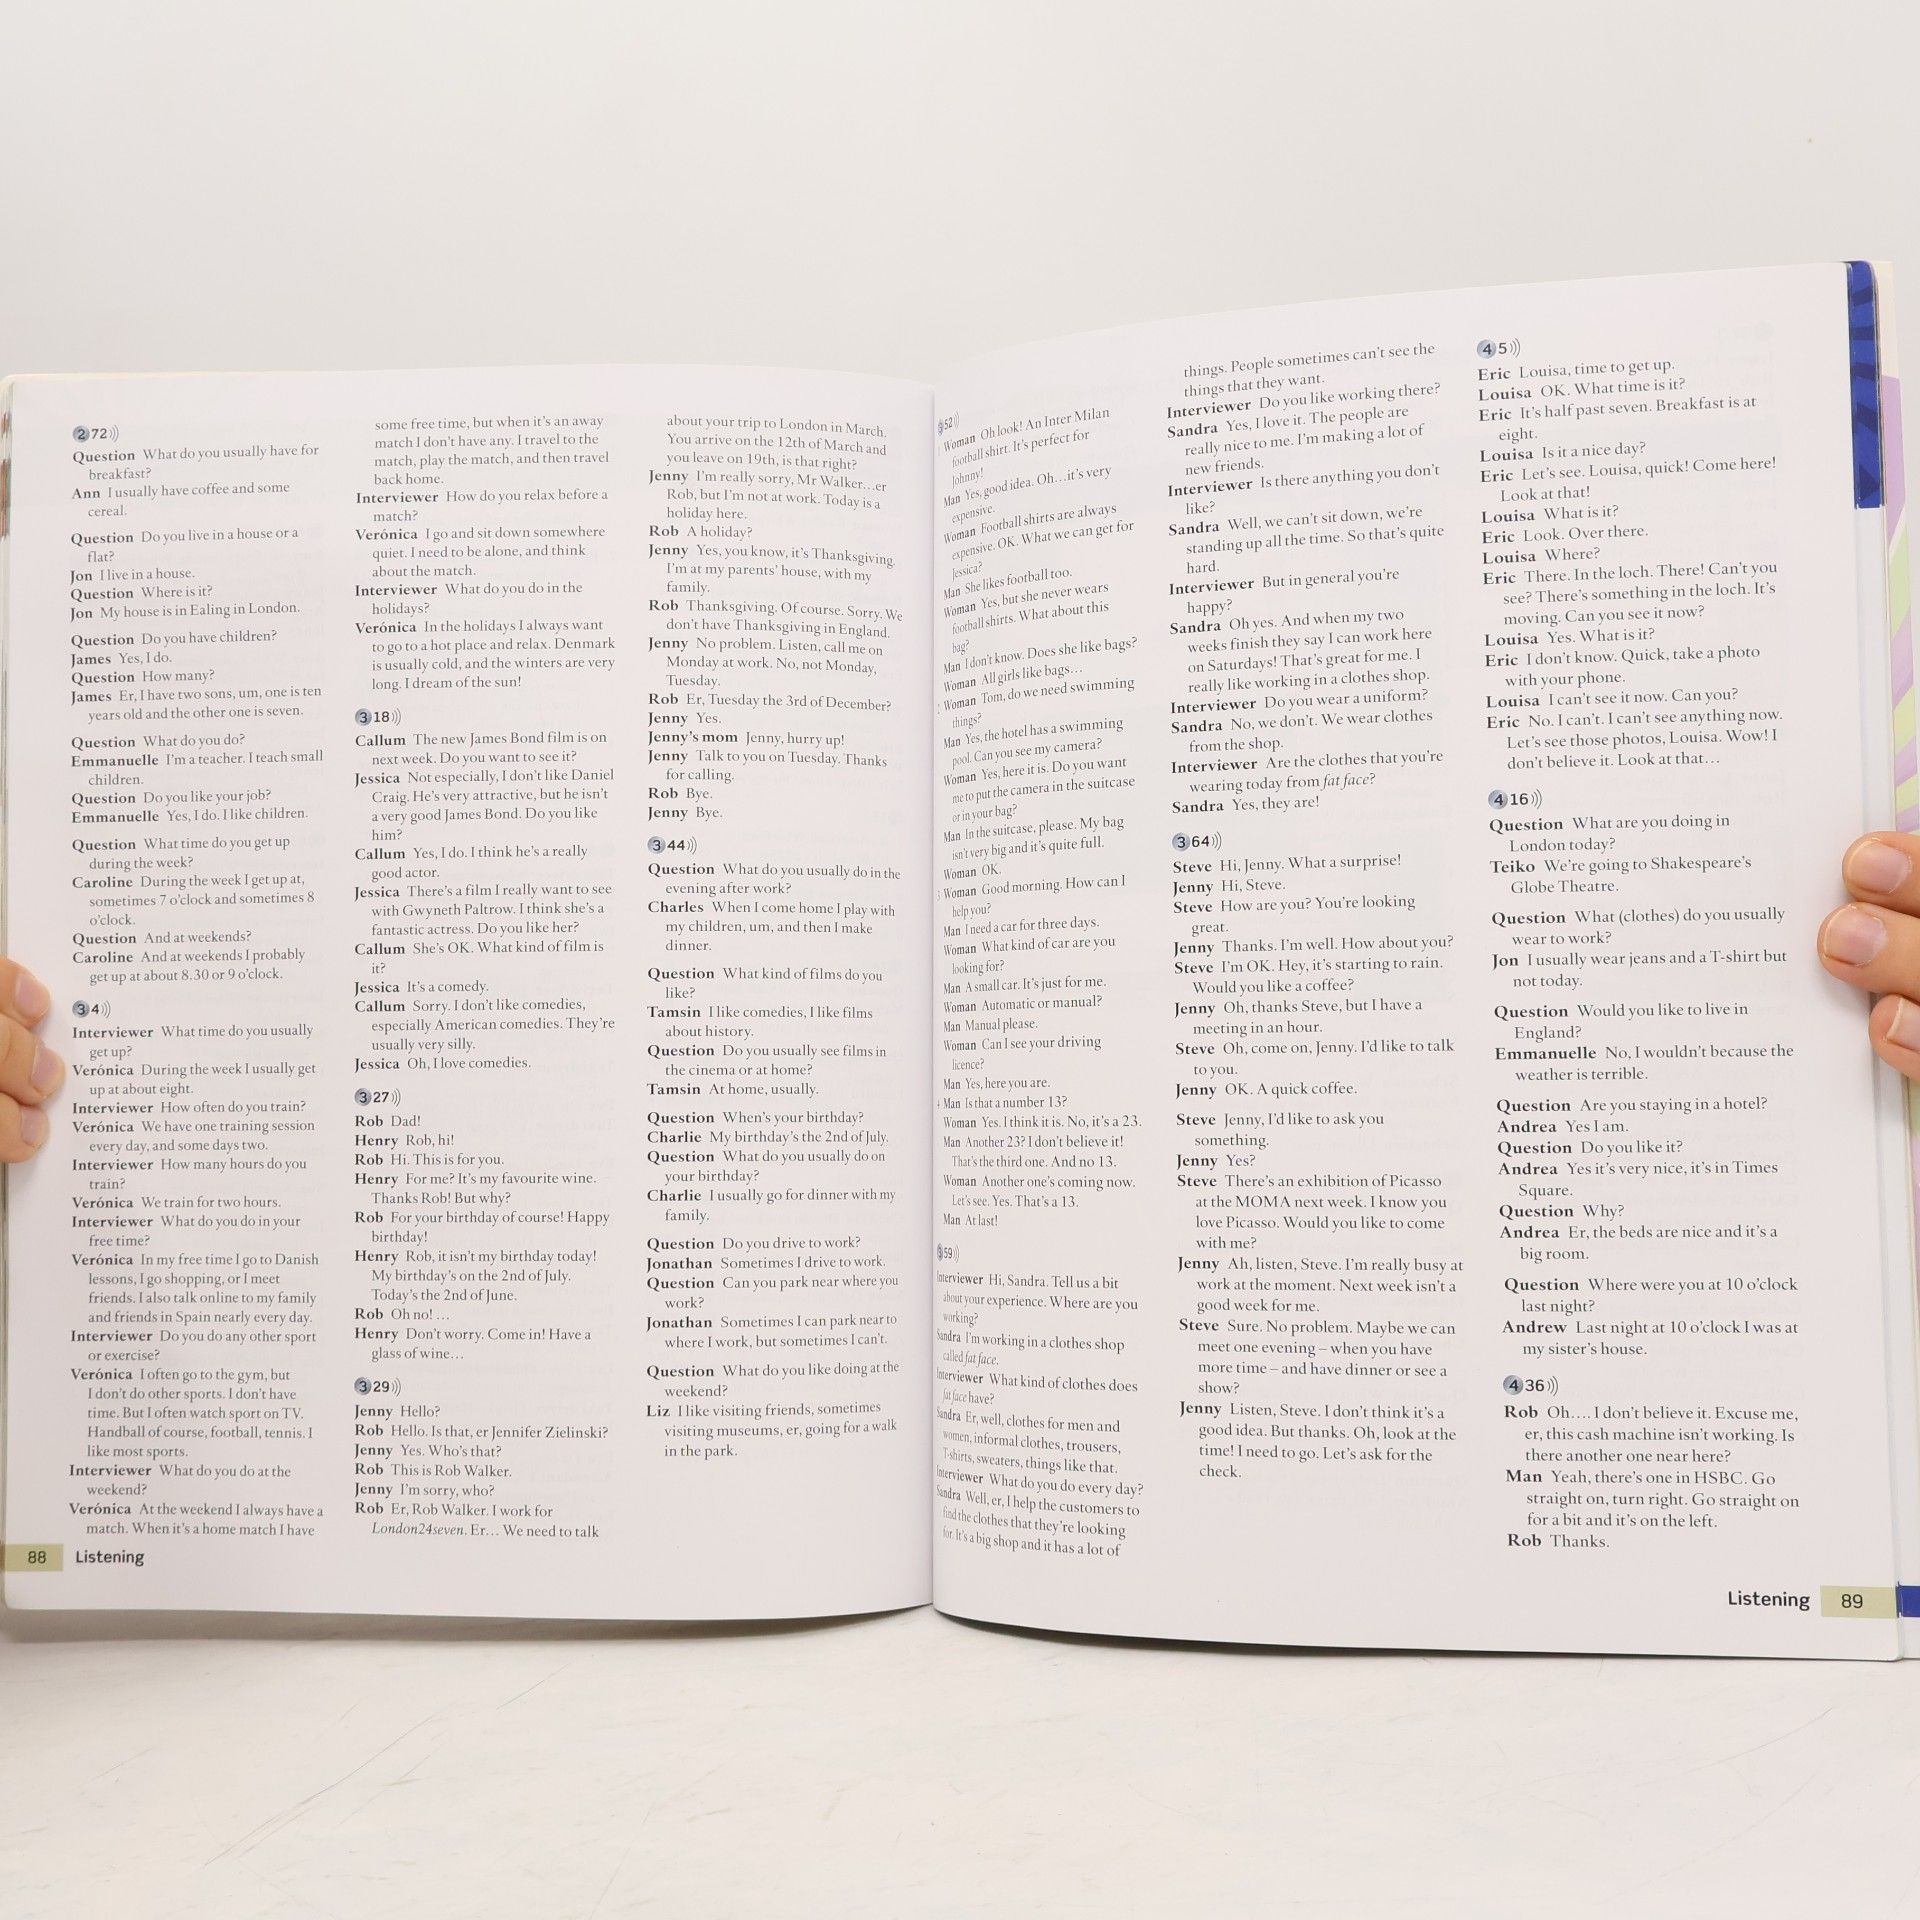 2 72
Question What do you usually have for
breakfast?
Ann I usually have coffee and some
cereal.
Question Do you live in a house or a
flat?
Jon I live in a house.
Question Where is it?
Jon My house is in Ealing in London.
Question Do you have children?
James Yes, I do.
Question How many?
James Er, I have two sons, um, one is ten
years old and the other one is seven.
Question What do you do?
Emmanuelle I'm a teacher. I teach small
children.
Question Do you like your job?
Emmanuelle Yes, I do. I like children.
Question What time do you get up
during the week?
Caroline During the week I get up at,
sometimes 7 o'clock and sometimes 8
o'clock.
Question And at weekends?
Caroline And at weekends I probably
get up at about 8.30 or 9 o'clock.
3 4
Interviewer What time do you usually
get up?
Verónica During the week I usually get
up at about eight.
Interviewer How often do you train?
Verónica We have one training session
every day, and some days two.
Interviewer How many hours do you
train?
Verónica We train for two hours.
Interviewer What do you do in your
free time?
Verónica In my free time I go to Danish
lessons, I go shopping, or I meet
friends. I also talk online to my family
and friends in Spain nearly every day.
Interviewer Do you do any other sport
or exercise?
Verónica I often go to the gym, but
I don't do other sports. I don't have
time. But I often watch sport on TV.
Handball of course, football, tennis. I
like most sports.
Interviewer What do you do at the
weekend?
Verónica At the weekend I always have a
match. When it's a home match I have
some free time, but when it's an away
match I don't have any. I travel to the
match, play the match, and then travel
back home.
Interviewer How do you relax before a
match?
Verónica I go and sit down somewhere
quiet. I need to be alone, and think
about the match.
Interviewer What do you do in the
holidays?
Verónica In the holidays I always want
to go to a hot place and relax. Denmark
is usually cold, and the winters are very
long. I dream of the sun!
3 18
Callum The new James Bond film is on
next week. Do you want to see it?
Jessica Not especially, I don't like Daniel
Craig. He's very attractive, but he isn't
a very good James Bond. Do you like
him?
Callum Yes, I do. I think he's a really
good actor.
Jessica There's a film I really want to see
with Gwyneth Paltrow. I think she's a
fantastic actress. Do you like her?
Callum She's OK. What kind of film is
it?
Jessica It's a comedy.
Callum Sorry. I don't like comedies,
especially American comedies. They're
usually very silly.
Jessica Oh, I love comedies.
3 27
Rob Dad!
Henry Rob, hi!
Rob Hi. This is for you.
Henry For me? It's my favourite wine.
Thanks Rob! But why?
Rob For your birthday of course! Happy
birthday!
Henry Rob, it isn't my birthday today!
My birthday's on the 2nd of July.
Today's the 2nd of June.
Rob Oh no! …
Henry Don't worry. Come in! Have a
glass of wine…
3 29
Jenny Hello?
Rob Hello. Is that, er Jennifer Zielinski?
Jenny Yes. Who's that?
Rob This is Rob Walker.
Jenny I'm sorry, who?
Rob Er, Rob Walker. I work for
London24seven. Er… We need to talk
about your trip to London in March.
You arrive on the 12th of March and
you leave on 19th, is that right?
Jenny I'm really sorry, Mr Walker…er
Rob, but I'm not at work. Today is a
holiday here.
Rob A holiday?
Jenny Yes, you know, it's Thanksgiving.
I'm at my parents' house, with my
family.
Rob Thanksgiving. Of course. Sorry. We
don't have Thanksgiving in England.
Jenny No problem. Listen, call me on
Monday at work. No, not Monday,
Tuesday.
Rob Er, Tuesday the 3rd of December?
Jenny Yes.
Jenny's mom Jenny, hurry up!
Jenny Talk to you on Tuesday. Thanks
for calling.
Rob Bye.
Jenny Bye.
3 44
Question What do you usually do in the
evening after work?
Charles When I come home I play with
my children, um, and then I make
dinner.
Question What kind of films do you
like?
Tamsin I like comedies, I like films
about history.
Question Do you usually see films in
the cinema or at home?
Tamsin At home, usually.
Question When's your birthday?
Charlie My birthday's the 2nd of July.
Question What do you usually do on
your birthday?
Charlie I usually go for dinner with my
family.
Question Do you drive to work?
Jonathan Sometimes I drive to work.
Question Can you park near where you
work?
Jonathan Sometimes I can park near to
where I work, but sometimes I can't.
Question What do you like doing at the
weekend?
Liz I like visiting friends, sometimes
visiting museums, er, going for a walk
in the park.
88 Listening
3 52
1 Woman Oh look! An Inter Milan
football shirt. It's perfect for
Johnny!
Man Yes, good idea. Oh…it's very
expensive.
Woman Football shirts are always
expensive. OK. What we can get for
Jessica?
Man She likes football too.
Woman Yes, but she never wears
football shirts. What about this
bag?
Man I don't know. Does she like bags?
Woman All girls like bags…
2 Woman Tom, do we need swimming
things?
Man Yes, the hotel has a swimming
pool. Can you see my camera?
Woman Yes, here it is. Do you want
me to put the camera in the suitcase
or in your bag?
Man In the suitcase, please. My bag
isn't very big and it's quite full.
Woman OK.
3 Woman Good morning. How can I
help you?
Man I need a car for three days.
Woman What kind of car are you
looking for?
Man A small car. It's just for me.
Woman Automatic or manual?
Man Manual please.
Woman Can I see your driving
licence?
Man Yes, here you are.
4 Man Is that a number 13?
Woman Yes. I think it is. No, it's a 23.
Man Another 23? I don't believe it!
That's the third one. And no 13.
Woman Another one's coming now.
Let's see. Yes. That's a 13.
Man At last!
3 59
Interviewer Hi, Sandra. Tell us a bit
about your experience. Where are you
working?
Sandra I'm working in a clothes shop
called fat face.
Interviewer What kind of clothes does
fat face have?
Sandra Er, well, clothes for men and
women, informal clothes, trousers,
T-shirts, sweaters, things like that.
Interviewer What do you do every day?
Sandra Well, er, I help the customers to
find the clothes that they're looking
for. It's a big shop and it has a lot of
things. People sometimes can't see the
things that they want.
Interviewer Do you like working there?
Sandra Yes, I love it. The people are
really nice to me. I'm making a lot of
new friends.
Interviewer Is there anything you don't
like?
Sandra Well, we can't sit down, we're
standing up all the time. So that's quite
hard.
Interviewer But in general you're
happy?
Sandra Oh yes. And when my two
weeks finish they say I can work here
on Saturdays! That's great for me. I
really like working in a clothes shop.
Interviewer Do you wear a uniform?
Sandra No, we don't. We wear clothes
from the shop.
Interviewer Are the clothes that you're
wearing today from fat face?
Sandra Yes, they are!
3 64
Steve Hi, Jenny. What a surprise!
Jenny Hi, Steve.
Steve How are you? You're looking
great.
Jenny Thanks. I'm well. How about you?
Steve I'm OK. Hey, it's starting to rain.
Would you like a coffee?
Jenny Oh, thanks Steve, but I have a
meeting in an hour.
Steve Oh, come on, Jenny. I'd like to talk
to you.
Jenny OK. A quick coffee.
Steve Jenny, I'd like to ask you
something.
Jenny Yes?
Steve There's an exhibition of Picasso
at the MOMA next week. I know you
love Picasso. Would you like to come
with me?
Jenny Ah, listen, Steve. I'm really busy at
work at the moment. Next week isn't a
good week for me.
Steve Sure. No problem. Maybe we can
meet one evening – when you have
more time – and have dinner or see a
show?
Jenny Listen, Steve. I don't think it's a
good idea. But thanks. Oh, look at the
time! I need to go. Let's ask for the
check.
4 5
Eric Louisa, time to get up.
Louisa OK. What time is it?
Eric It's half past seven. Breakfast is at
eight.
Louisa Is it a nice day?
Eric Let's see. Louisa, quick! Come here!
Look at that!
Louisa What is it?
Eric Look. Over there.
Louisa Where?
Eric There. In the loch. There! Can't you
see? There's something in the loch. It's
moving. Can you see it now?
Louisa Yes. What is it?
Eric I don't know. Quick, take a photo
with your phone.
Louisa I can't see it now. Can you?
Eric No. I can't. I can't see anything now.
Let's see those photos, Louisa. Wow! I
don't believe it. Look at that…
4 16
Question What are you doing in
London today?
Teiko We're going to Shakespeare's
Globe Theatre.
Question What (clothes) do you usually
wear to work?
Jon I usually wear jeans and a T-shirt but
not today.
Question Would you like to live in
England?
Emmanuelle No, I wouldn't because the
weather is terrible.
Question Are you staying in a hotel?
Andrea Yes I am.
Question Do you like it?
Andrea Yes it's very nice, it's in Times
Square.
Question Why?
Andrea Er, the beds are nice and it's a
big room.
Question Where were you at 10 o'clock
last night?
Andrew Last night at 10 o'clock I was at
my sister's house.
4 36
Rob Oh…. I don't believe it. Excuse me,
er, this cash machine isn't working. Is
there another one near here?
Man Yeah, there's one in HSBC. Go
straight on, turn right. Go straight on
for a bit and it's on the left.
Rob Thanks.
Listening 89